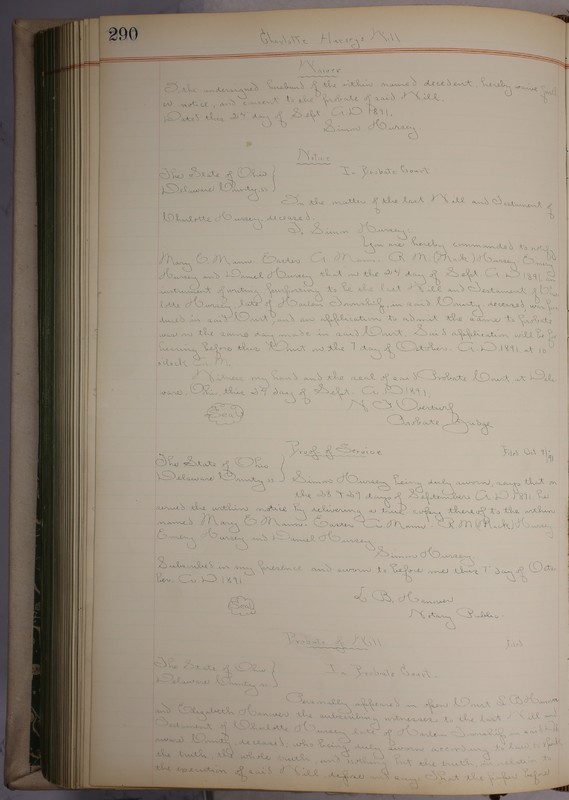 290
Charlotte Hursey's Will
Waiver
I the undersigned husband of the within named decedent, hereby waive
notice, and consent to the probate of said Will.
Dated this 28 day of Sept A.D. 1891.
Simon Hursey
Notice
The State of Ohio
Delaware County ss
In Probate Court
In the matter of the last Will and Testament of
Charlotte Hursey deceased.
To Simon Hursey.
You are hereby commanded to notify
Mary E Mann Easter A. Mann. R. M. (Mark) Hursey Emery
Hursey and Daniel Hursey that on the 28 day of Sept. A.D. 1891 an
instrument of writing purporting to be the last Will and Testament of Char
lotte Hursey late of Harlem Township, in said County, deceased, was
duced in said Court, and an application to admit the same to probate
was on the same day made in said Court. Said application will be for
hearing before this Court, on the 7 day of October. A.D. 1891, at 10
oclock A.M.
Witness my hand and the seal of said Probate Court at Dela
ware, Ohio, this 28 day of Sept. A.D. 1891
Seal
Probate Judge
Proof of Service
The State of Ohio
Delaware County ss
Simon Hursey being duly sworn, says that on
the 28 & 29 days of September A.D. 1891 he
served the within notice by delivering a true copy thereof to the within
named Mary E Mann Easter A. Mann, R. M. (Mark) Hursey
Emery Hursey and Daniel Hursey
Simon Hursey
Subscribed in my presence and sworn to before me this 7 day of Octo
ber A.D. 1891
Seal
L. B. Hanover
Notary Public
Probate of Will
The State of Ohio
Delaware County ss
In Probate Court.
Personally appeared in open Court L. B. Hanover
and Elizabeth Hanover the subscribing witnesses to the last Will and
Testament of Charlotte Hursey late of Harlem Township in said
County deceased, who being duly sworn according to law to speak
the truth the whole truth, and nothing but the truth, in relation to
the execution of said Will, depose and say: That the paper before